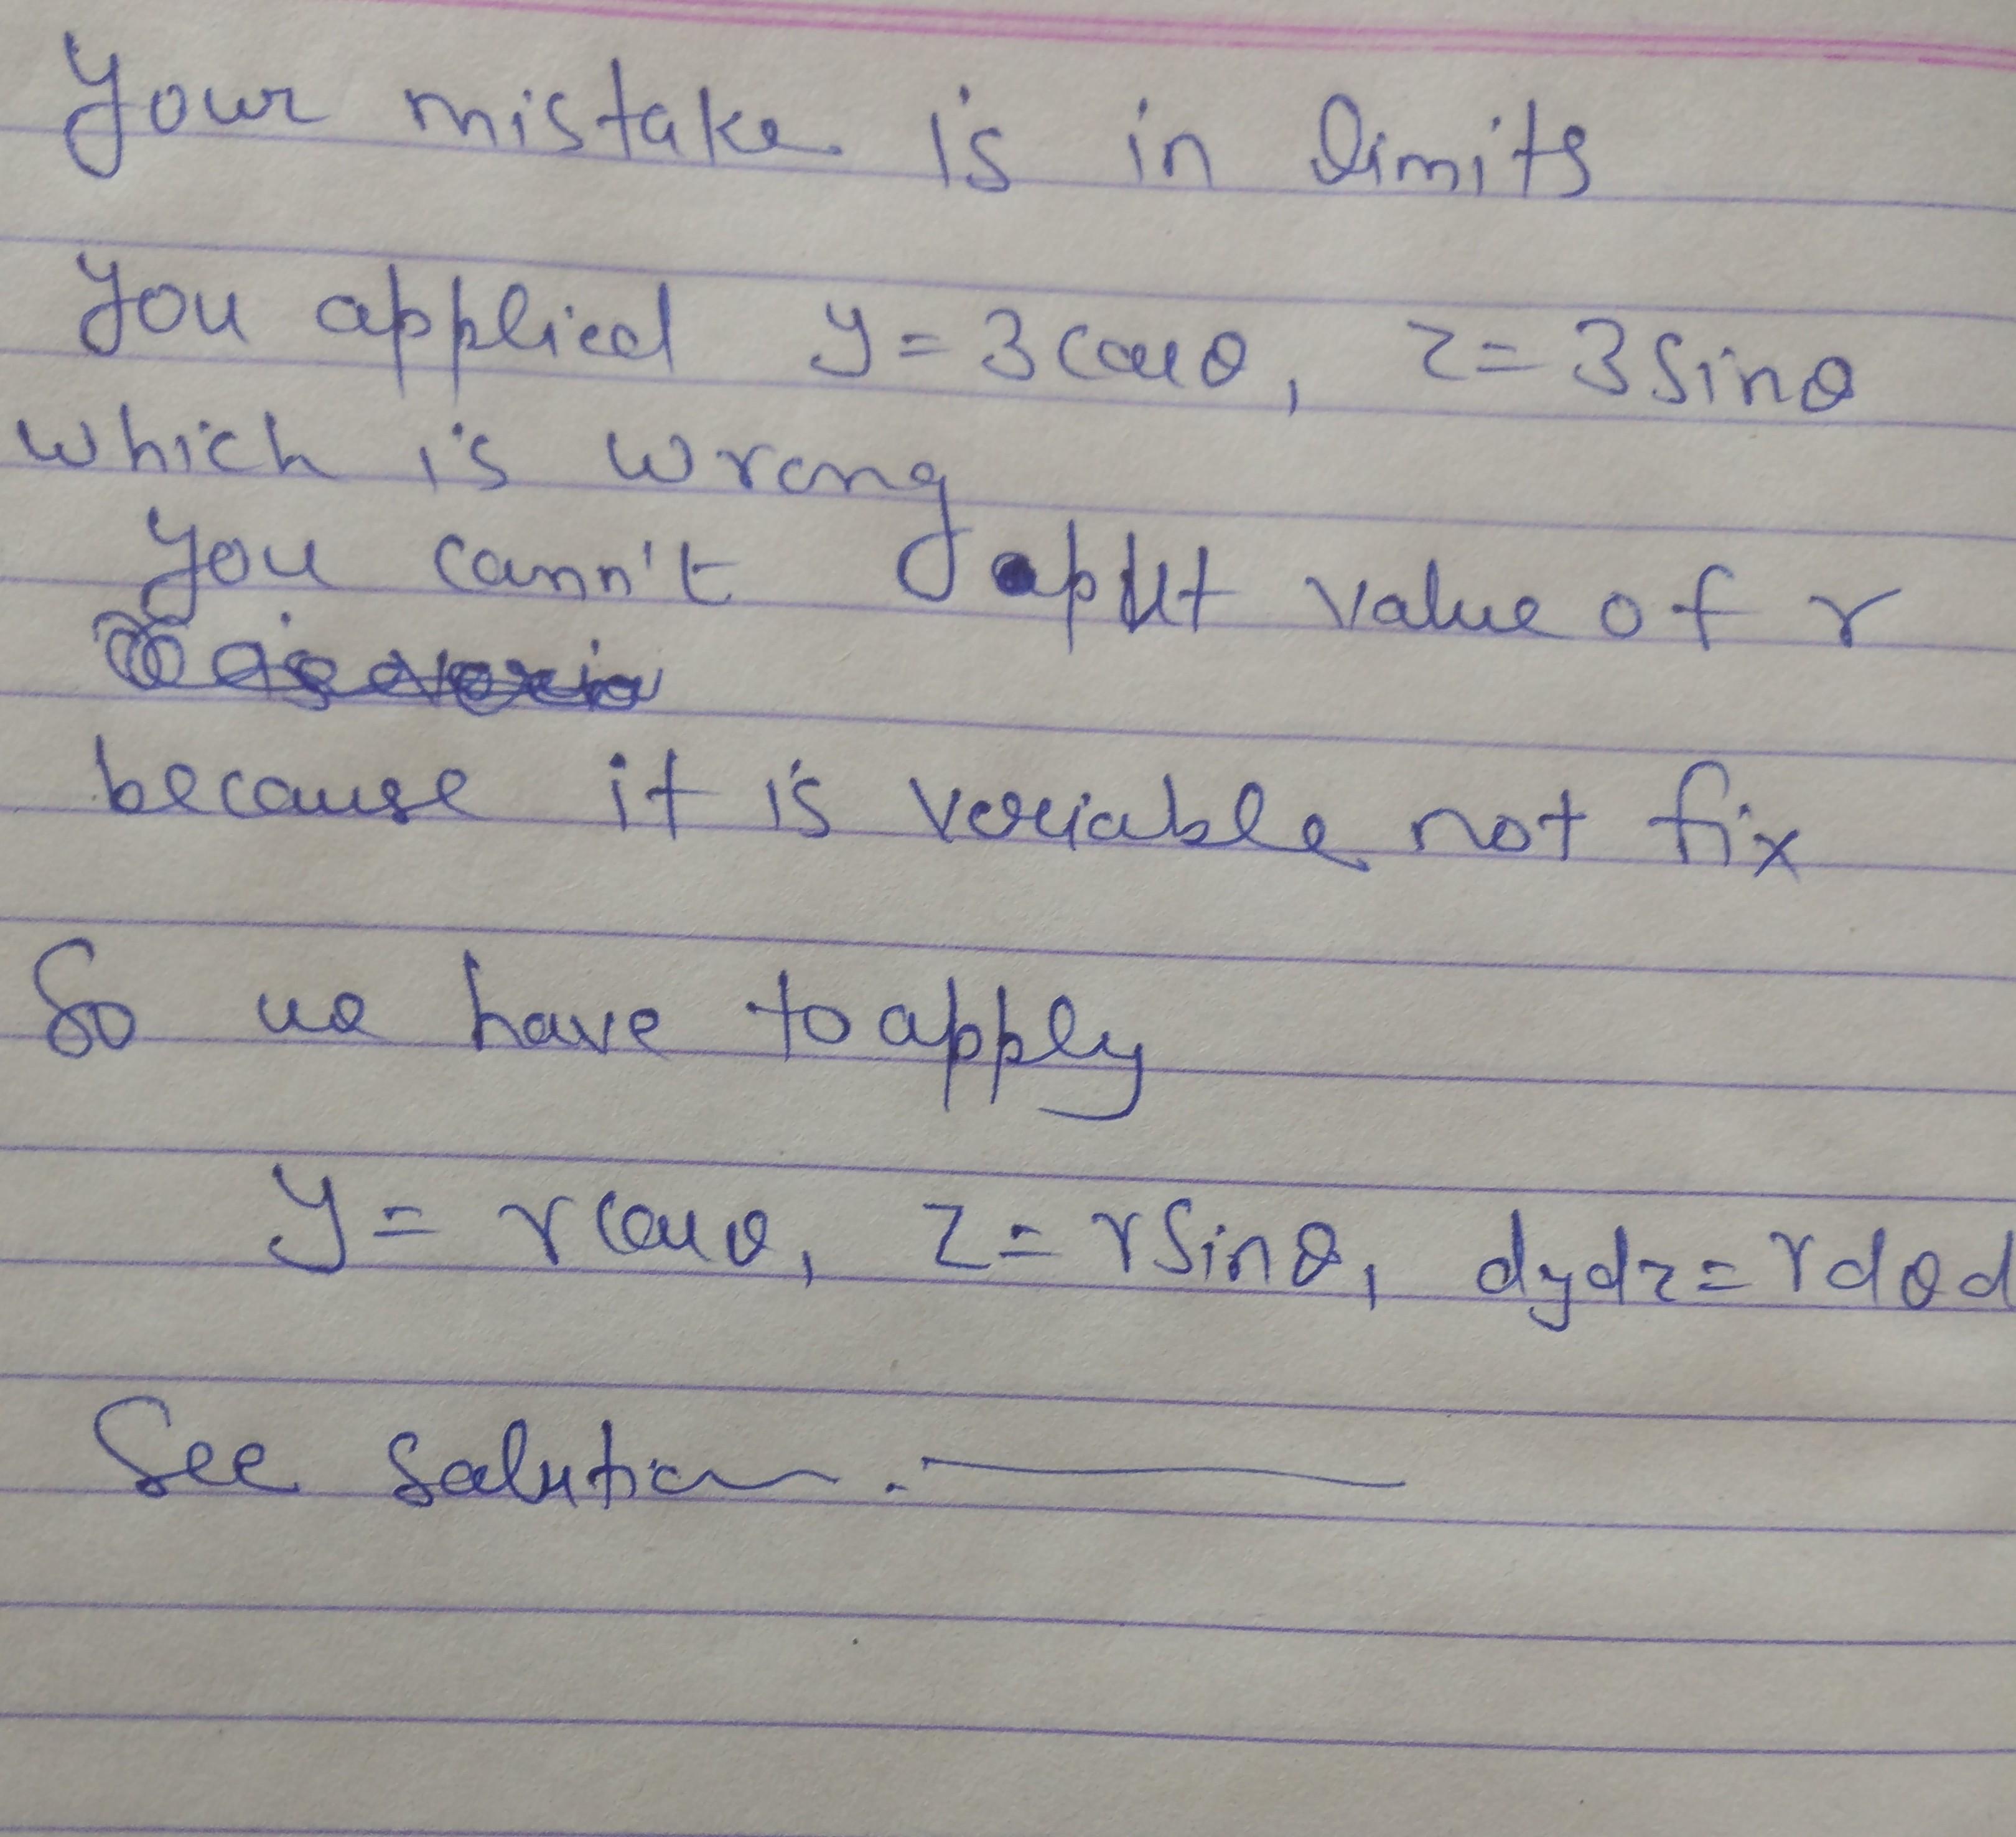 Your mistake is in limits
You applied y = 3 cos θ, z = 3 sin θ
which is wrong
you cann't put value of r
because it is variable not fix
So we have to apply
y = r cos θ, z = r sin θ, dydz = r dθ d
See solution.